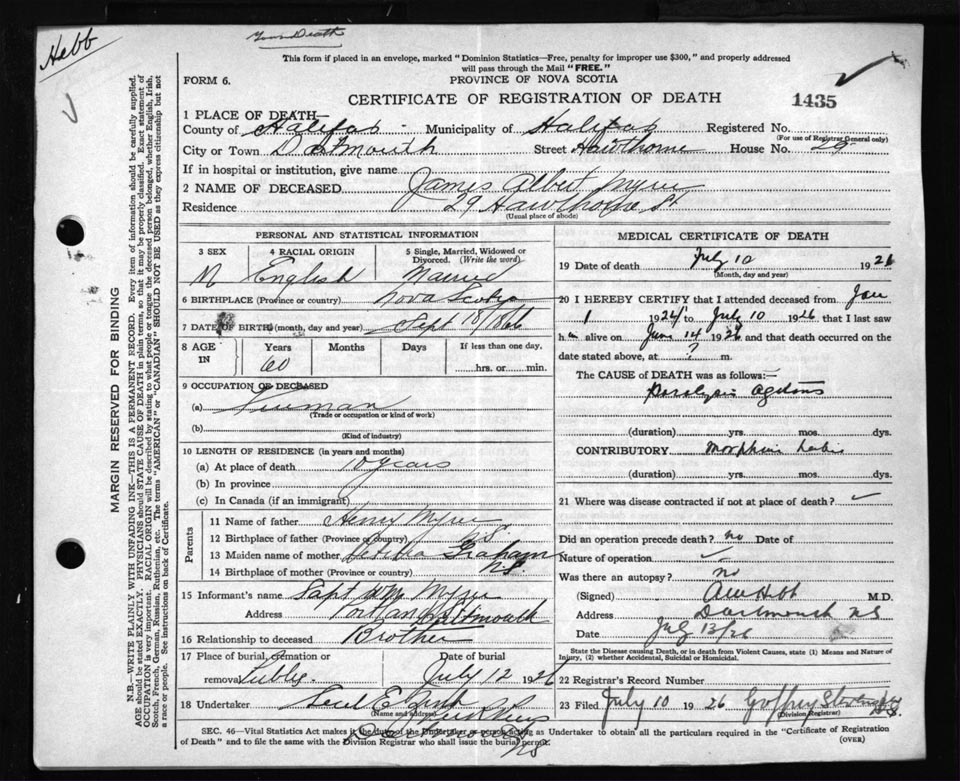 Hebb
Town Death
This form if placed in an envelope, marked "Dominion Statistics—Free, penalty for improper use $300," and properly addressed
will pass through the Mail "FREE."
FORM 6. PROVINCE OF NOVA SCOTIA
CERTIFICATE OF REGISTRATION OF DEATH 1435
1 PLACE OF DEATH—
County of Halifax Municipality of Halifax Registered No.
(For use of Registrar General only)
City or Town Dartmouth Street Hawthorne House No. 29
If in hospital or institution, give name
2 NAME OF DECEASED James Albert Myrer
Residence 29 Hawthorne St
(Usual place of abode)
PERSONAL AND STATISTICAL INFORMATION
3 SEX 4 RACIAL ORIGIN 5 Single, Married, Widowed or Divorced. (Write the word)
M English Married
6 BIRTHPLACE (Province or country) Nova Scotia
7 DATE OF BIRTH (month, day and year) Sept 18/1866
8 AGE IN Years Months Days If less than one day,
60 hrs. or min.
9 OCCUPATION OF DECEASED
(a)
(Trade or occupation or kind of work)
(b)
(Kind of industry)
10 LENGTH OF RESIDENCE (in years and months)
(a) At place of death 10 years
(b) In province
(c) In Canada (if an immigrant)
Parents
11 Name of father Henry Myrer
12 Birthplace of father (Province or country) N.S.
13 Maiden name of mother Graham
14 Birthplace of mother (Province or country) N.S.
15 Informant's name Capt Wm Myrer
Address Portland Dartmouth
16 Relationship to deceased Brother
17 Place of burial, cremation or removal Date of burial
July 12 1926
18 Undertaker Cecil E
(Name and address)
NS
MEDICAL CERTIFICATE OF DEATH
19 Date of death July 10 1926
(Month, day and year)
20 I HEREBY CERTIFY that I attended deceased from Jan
1 1924 to July 10 1926 that I last saw
h m alive on June 14 1926 and that death occurred on the
date stated above, at ? m.
The CAUSE of DEATH was as follows:—
Paralysis agitans
(duration) yrs. mos. dys.
CONTRIBUTORY Morphine habit
(duration) yrs. mos. dys.
21 Where was disease contracted if not at place of death?
Did an operation precede death? no Date of
Nature of operation
Was there an autopsy? no
(Signed) Hebb M.D.
Address Dartmouth NS
Date July 13/26
State the Disease causing Death, or in death from Violent Causes, state (1) Means and Nature of
Injury, (2) whether Accidental, Suicidal or Homicidal.
22 Registrar's Record Number
23 Filed July 10 1926 Godfrey
(Division Registrar)
SEC. 46—Vital Statistics Act makes it the duty of the Undertaker or person acting as Undertaker to obtain all the particulars required in the "Certificate of Registration
of Death" and to file the same with the Division Registrar who shall issue the burial permit. (OVER)
MARGIN RESERVED FOR BINDING
N.B.—WRITE PLAINLY WITH UNFADING INK—THIS IS A PERMANENT RECORD. Every item of information should be carefully supplied.
AGE should be stated EXACTLY. PHYSICIANS should STATE CAUSE OF DEATH in plain terms, so that it may be properly classified. Exact statement of
OCCUPATION is very important. RACIAL ORIGIN will be described by stating to what people or tongue the deceased person belonged, whether English, Irish,
Scotch, French, German, Russian, Ruthenian, etc. The terms "AMERICAN" or "CANADIAN" SHOULD NOT BE USED as they express citizenship but not
a race or people. See instructions on back of Certificate.